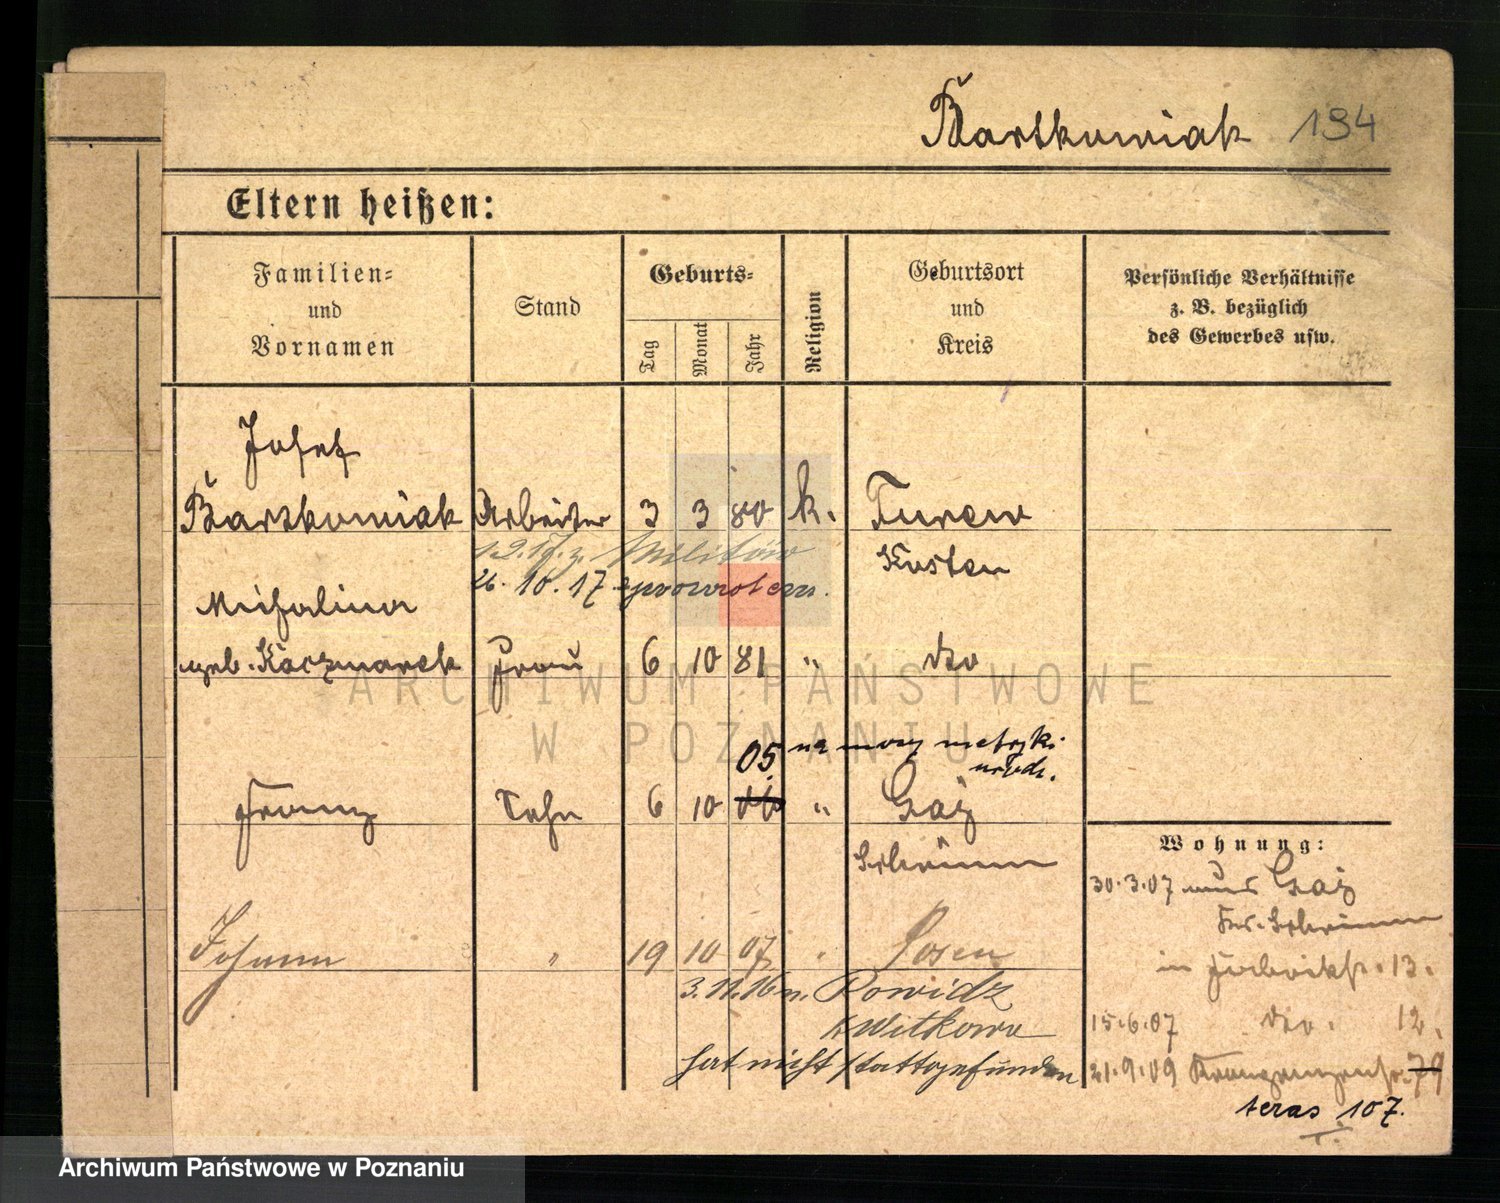 Bartkowiak 194
Eltern heißen:
Familien-
und
Vornamen
Stand
Geburts-
Tag
Monat
Jahr
Religion
Geburtsort
und
Kreis
Persönliche Verhältnisse
z. B. bezüglich
des Gewerbes usw.
Josef
Bartkowiak Arbeiter 3 3 80 k. Turew
Kosten
19.17. z. Militär
26.10.17 z powrotem.
Michalina
geb. Kaczmarek Frau 6 10 81 " dto
05. na mocy metryki
urodz.
Franz Sohn 6 10 06 " Gaj
Schrimm
Johann " 19 10 07 " Posen
3.11.16 n. Powidz
k Witkowo
hat nicht stattgefunden
Wohnung:
30.3.07 aus Gaj
Kr. Schrimm
in Fabrikstr. 13.
15.6.07 dto. 12.
21.9.09 79
teras 107.
ARCHIWUM PAŃSTWOWE
W POZNANIU
Archiwum Państwowe w Poznaniu